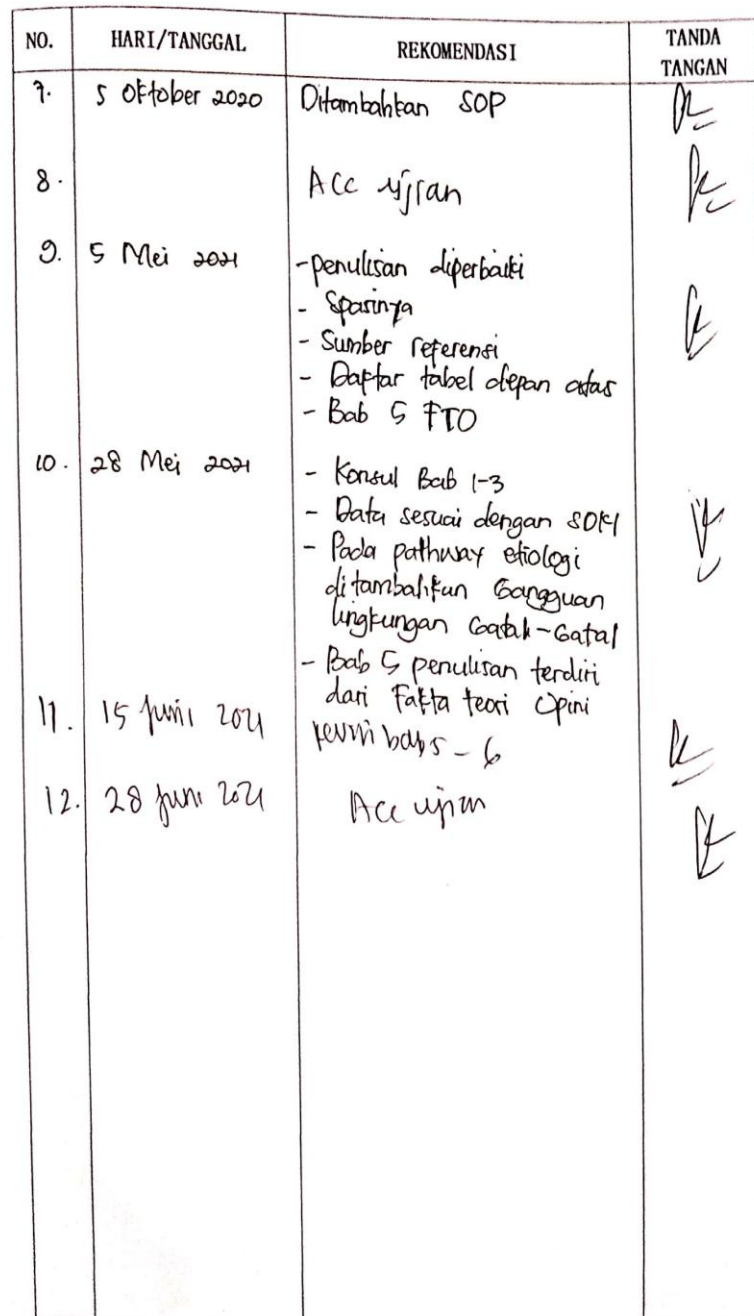 NO. HARI/TANGGAL REKOMENDASI TANDA TANGAN
7. 5 Oktober 2020 Ditambahkan SOP
8. Acc ujian
9. 5 Mei 2021 - penulisan diperbaiki
- Spasinya
- Sumber referensi
- Daftar tabel depan atas
- Bab 5 FTO
10. 28 Mei 2021 - Konsul Bab 1-3
- Data sesuai dengan SDKI
- Pada pathway etiologi
ditambahkan Gangguan
lingkungan Gatal-Gatal
- Bab 5 penulisan terdiri
dari Fakta teori Opini
11. 15 Juni 2021 revisi bab 5 - 6
12. 28 Juni 2021 Acc ujian